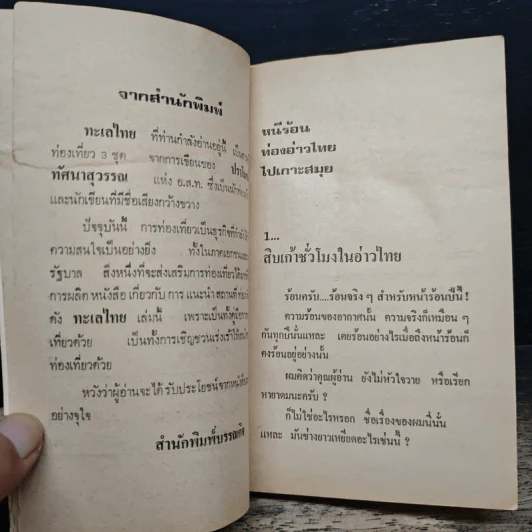 จากสำนักพิมพ์
ทะเลไทย ที่ท่านกำลังอ่านอยู่นี้
ท่องเที่ยว 3 ชุด จากการเขียนของ
ทัศนาสุวรรณ แห่ง อ.ส.ท. ซึ่งเป็น
และนักเขียนที่มีชื่อเสียงกว้างขวาง
ปัจจุบันนี้ การท่องเที่ยวเป็นธุรกิจที่
ความสนใจเป็นอย่างยิ่ง ทั้งในภาคเอกชน
รัฐบาล สิ่งหนึ่งที่จะส่งเสริมการท่องเที่ยวได้
การผลิต หนังสือ เกี่ยวกับ การ แนะนำ สถานที่
ดัง ทะเลไทย เล่มนี้ เพราะเป็นทั้ง
เที่ยวด้วย เป็นทั้งการเชิญชวนเร่งเร้าให้
ท่องเที่ยวด้วย
หวังว่าผู้อ่านจะได้ รับประโยชน์จาก
อย่างจุใจ
สำนักพิมพ์บรรณกิจ
หนีร้อน
ท่องอ่าวไทย
ไปเกาะสมุย
1...
สิบเก้าชั่วโมงในอ่าวไทย
ร้อนครับ....ร้อนจริง ๆ สำหรับหน้าร้อนปีนี้ !
ความร้อนของอากาศนั้น ความจริงก็เหมือน ๆ
กันทุกปีนั่นแหละ เคยร้อนอย่างไรเมื่อถึงหน้าร้อนก็
คงร้อนอยู่อย่างนั้น
ผมคิดว่าคุณผู้อ่าน ยังไม่หัวใจวาย หรือเรียก
หายาดมนะครับ ?
ก็ไม่ใช่อะไรหรอก ชื่อเรื่องของผมนี่นั่น
แหละ มันช่างยาวเหยียดอะไรเช่นนี้ ?